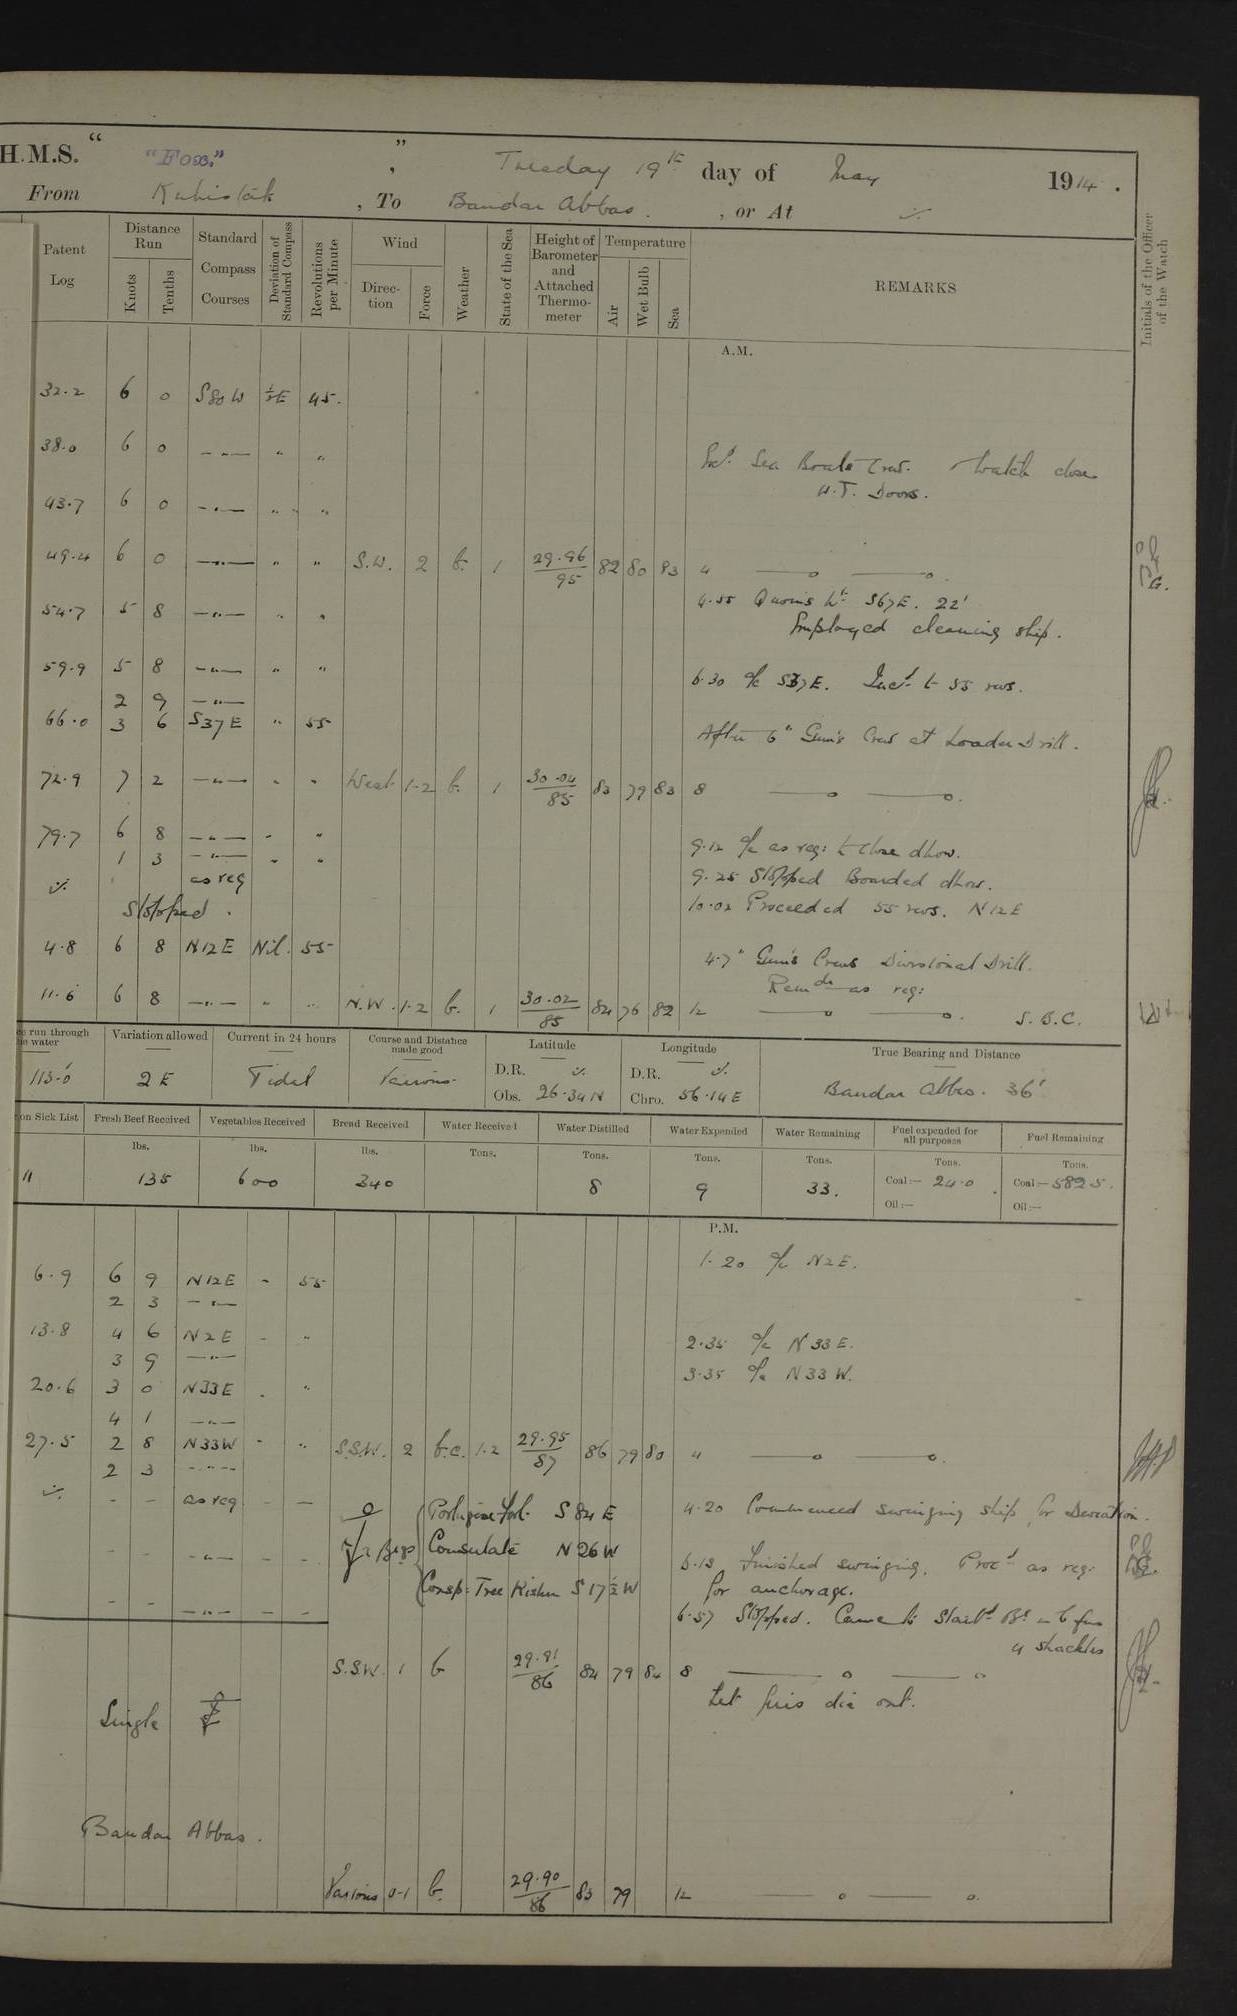 H.M.S. " "Fox." " , Tuesday 19th day of May 1914.
From Kuhistak , To Bandar Abbas. , or At
Patent Log
Distance Run
Knots
Tenths
Standard Compass Courses
Deviation of Standard Compass
Revolutions per Minute
Wind
Direction
Force
Weather
State of the Sea
Height of Barometer and Attached Thermometer
Temperature
Air
Wet Bulb
Sea
REMARKS
Initials of the Officer of the Watch
A.M.
32.2 6 0 S80W ½E 45.
38.0 6 0 —„— „ „
Sea Boats Crew. Watch close
W.T. Doors.
43.7 6 0 —„— „ „
49.4 6 0 —„— „ „ S.W. 2 b. 1 29.96/95 82 80 83 4
54.7 5 8 —„— „ „ 4.55 Quoins Lt. S67E. 22'
Employed cleaning ship.
59.9 5 8 —„— „ „ 6.30 a/c S37E. Incd. to 55 revs.
2 9 —„—
66.0 3 6 S37E „ 55 After 6" Gun's Crew at Loader Drill.
72.9 7 2 —„— „ „ West 1-2 b. 1 30.04/85 83 79 83 8
79.7 6 8 —„— „ „ 9.12 a/c as req: to close dhow.
1 3 —„— „ „
as req 9.25 Stopped Boarded dhow.
Stopped. 10.02 Proceeded 55 revs. N12E
4.8 6 8 N12E Nil. 55 4.7" Gun's Crews Divisional Drill.
Remdr as req:
11.6 6 8 —„— „ „ N.W. 1-2 b. 1 30.02/85 84 76 82 12 S.B.C.
run through the water
Variation allowed
Current in 24 hours
Course and Distance made good
Latitude
Longitude
True Bearing and Distance
113.0 2E Tidal Various
D.R.
Obs. 26.34N
D.R.
Chro. 56.14E
Bandar Abbas. 36'
on Sick List
Fresh Beef Received
Vegetables Received
Bread Received
Water Received
Water Distilled
Water Expended
Water Remaining
Fuel expended for all purposes
Fuel Remaining
lbs. lbs. lbs. Tons. Tons. Tons. Tons. Tons. Tons.
11 135 600 340 8 9 33. Coal:— 24.0 Coal:— 582.5.
Oil:— Oil:—
P.M.
1.20 a/c N2E.
6.9 6 9 N12E - 55
2 3 —„—
13.8 4 6 N2E - „ 2.35 a/c N33E.
3 9 —„— 3.35 a/c N33W.
20.6 3 0 N33E . „
4 1 —„—
27.5 2 8 N33W - „ S.S.W. 2 b.c. 1.2 29.95/87 86 79 80 4
2 3 —„—
- - as req - — Portugese Fort. S84E 4.20 Commenced swinging ship for Deviation.
- - —„— - - Brgs Consulate N26W 6.18 Finished swinging. Procd. as req:
Consp: Tree Kishm S17½W for anchorage.
- - —„— - - 6.57 Stopped. Came to Starbd. Br. in 6 fms
4 shackles
S.S.W. 1 b 29.91/86 84 79 84 8
Let fires die out.
Single
Bandar Abbas.
Various 0-1 b. 29.90/86 83 79 12